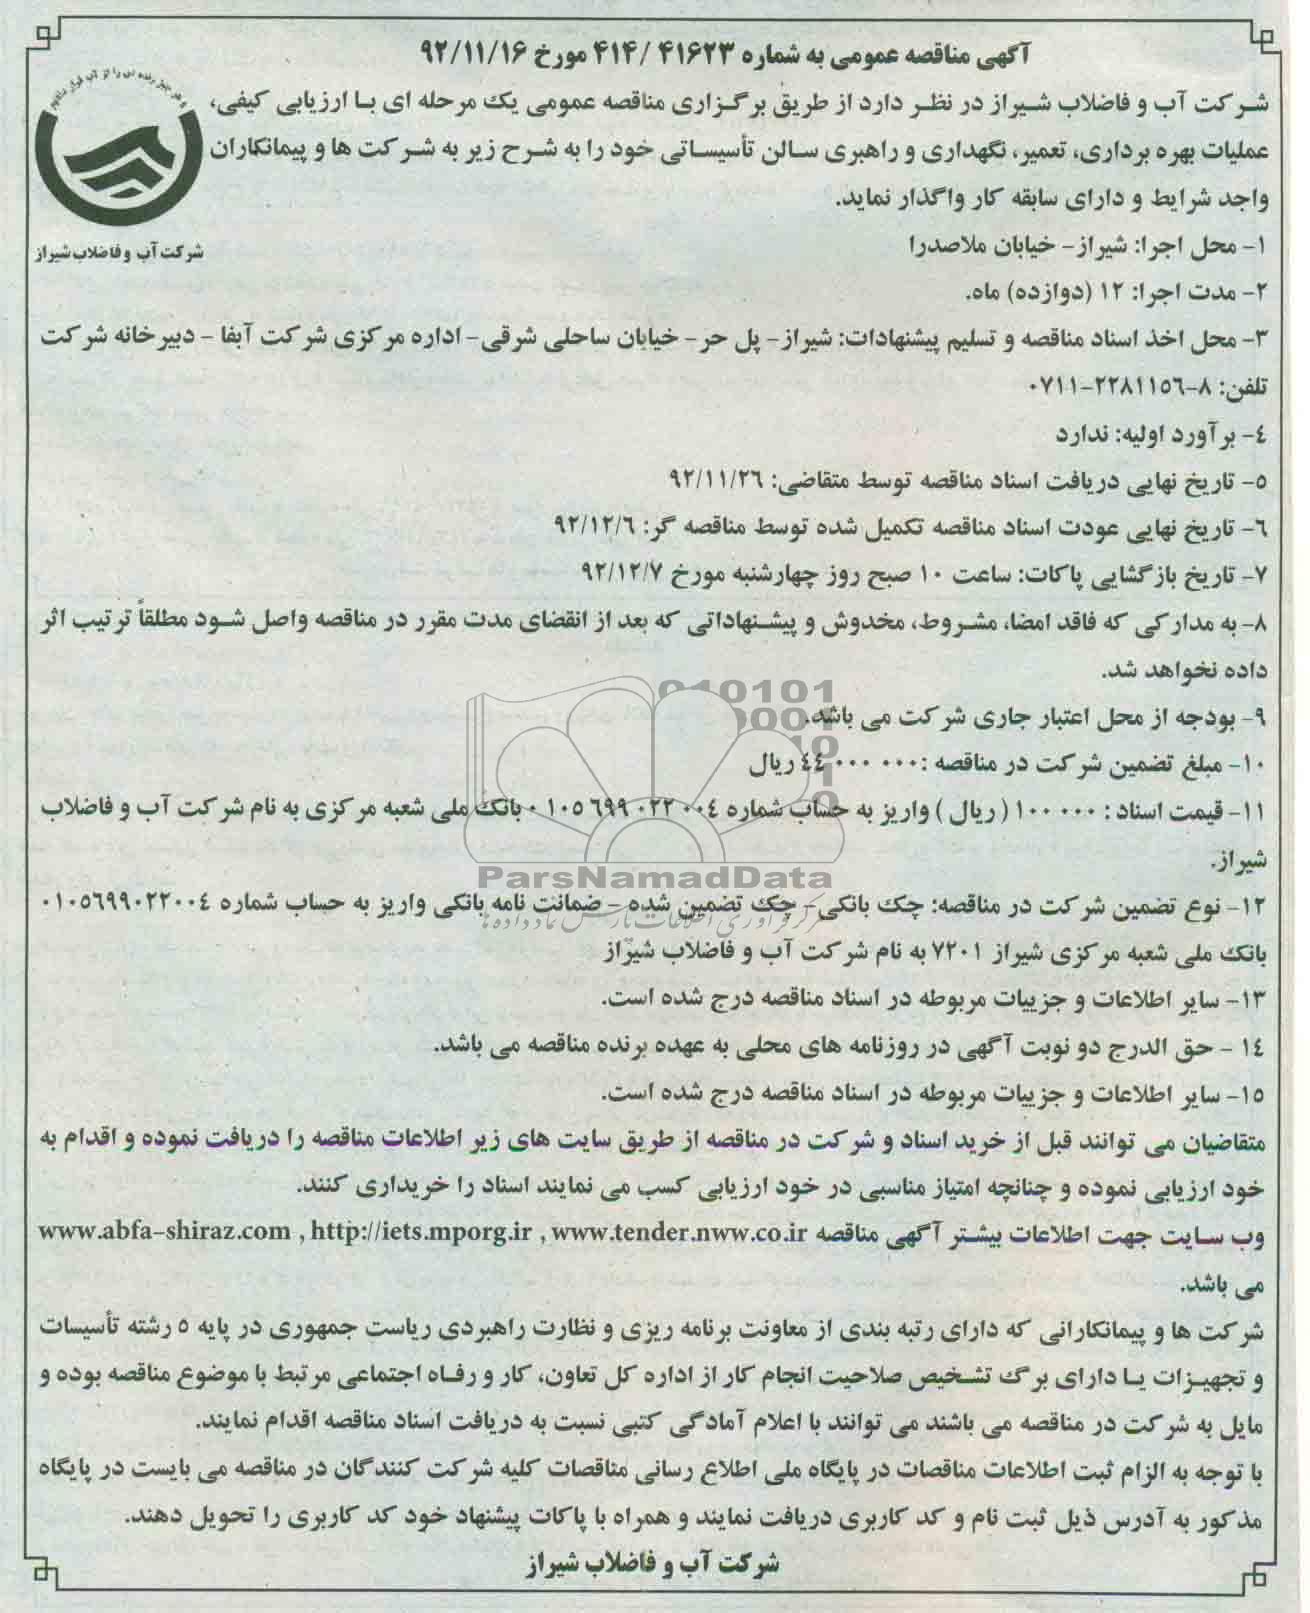 آگهی مناقصه عمومی به شماره ۴۱۶۲۳ /۴۱۴ مورخ ۹۲/۱۱/۱۶
شرکت آب و فاضلاب شیراز در نظر دارد از طریق برگزاری مناقصه عمومی یک مرحله ای با ارزیابی کیفی،
عملیات بهره برداری، تعمیر، نگهداری و راهبری سالن تأسیساتی خود را به شرح زیر به شرکت ها و پیمانکاران
واجد شرایط و دارای سابقه کار واگذار نماید.
شرکت آب و فاضلاب شیراز
۱- محل اجرا: شیراز- خیابان ملاصدرا
۲- مدت اجرا: ۱۲ (دوازده) ماه.
۳- محل اخذ اسناد مناقصه و تسلیم پیشنهادات: شیراز- پل حر- خیابان ساحلی شرقی- اداره مرکزی شرکت آبفا - دبیرخانه شرکت
تلفن: ۸-۲۲۸۱۱۵۶-۰۷۱۱
۴- برآورد اولیه: ندارد
۵- تاریخ نهایی دریافت اسناد مناقصه توسط متقاضی: ۹۲/۱۱/۲۶
۶- تاریخ نهایی عودت اسناد مناقصه تکمیل شده توسط مناقصه گر: ۹۲/۱۲/۶
۷- تاریخ بازگشایی پاکات: ساعت ۱۰ صبح روز چهارشنبه مورخ ۹۲/۱۲/۷
۸- به مدارکی که فاقد امضا، مشروط، مخدوش و پیشنهاداتی که بعد از انقضای مدت مقرر در مناقصه واصل شود مطلقاً ترتیب اثر
داده نخواهد شد.
۹- بودجه از محل اعتبار جاری شرکت می باشد.
۱۰- مبلغ تضمین شرکت در مناقصه :۴۴ ۰۰۰ ۰۰۰ ریال
۱۱- قیمت اسناد : ۱۰۰ ۰۰۰ ( ریال ) واریز به حساب شماره ۰۱۰۵ ۶۹۹ ۰۲۲ ۰۰۴ بانک ملی شعبه مرکزی به نام شرکت آب و فاضلاب
شیراز.
ParsNamadData
۱۲- نوع تضمین شرکت در مناقصه: چک بانکی- چک تضمین شده - ضمانت نامه بانکی واریز به حساب شماره ۰۱۰۵۶۹۹۰۲۲۰۰۴
بانک ملی شعبه مرکزی شیراز ۷۲۰۱ به نام شرکت آب و فاضلاب شیراز
۱۳- سایر اطلاعات و جزییات مربوطه در اسناد مناقصه درج شده است.
۱۴ - حق الدرج دو نوبت آگهی در روزنامه های محلی به عهده برنده مناقصه می باشد.
۱۵- سایر اطلاعات و جزییات مربوطه در اسناد مناقصه درج شده است.
متقاضیان می توانند قبل از خرید اسناد و شرکت در مناقصه از طریق سایت های زیر اطلاعات مناقصه را دریافت نموده و اقدام به
خود ارزیابی نموده و چنانچه امتیاز مناسبی در خود ارزیابی کسب می نمایند اسناد را خریداری کنند.
وب سایت جهت اطلاعات بیشتر آگهی مناقصه www.abfa-shiraz.com , http://iets.mporg.ir , www.tender.nww.co.ir
می باشد.
شرکت ها و پیمانکارانی که دارای رتبه بندی از معاونت برنامه ریزی و نظارت راهبردی ریاست جمهوری در پایه ۵ رشته تأسیسات
و تجهیزات یا دارای برگ تشخیص صلاحیت انجام کار از اداره کل تعاون، کار و رفاه اجتماعی مرتبط با موضوع مناقصه بوده و
مایل به شرکت در مناقصه می باشند می توانند با اعلام آمادگی کتبی نسبت به دریافت اسناد مناقصه اقدام نمایند.
با توجه به الزام ثبت اطلاعات مناقصات در پایگاه ملی اطلاع رسانی مناقصات کلیه شرکت کنندگان در مناقصه می بایست در پایگاه
مذکور به آدرس ذیل ثبت نام و کد کاربری دریافت نمایند و همراه با پاکات پیشنهاد خود کد کاربری را تحویل دهند.
شرکت آب و فاضلاب شیراز